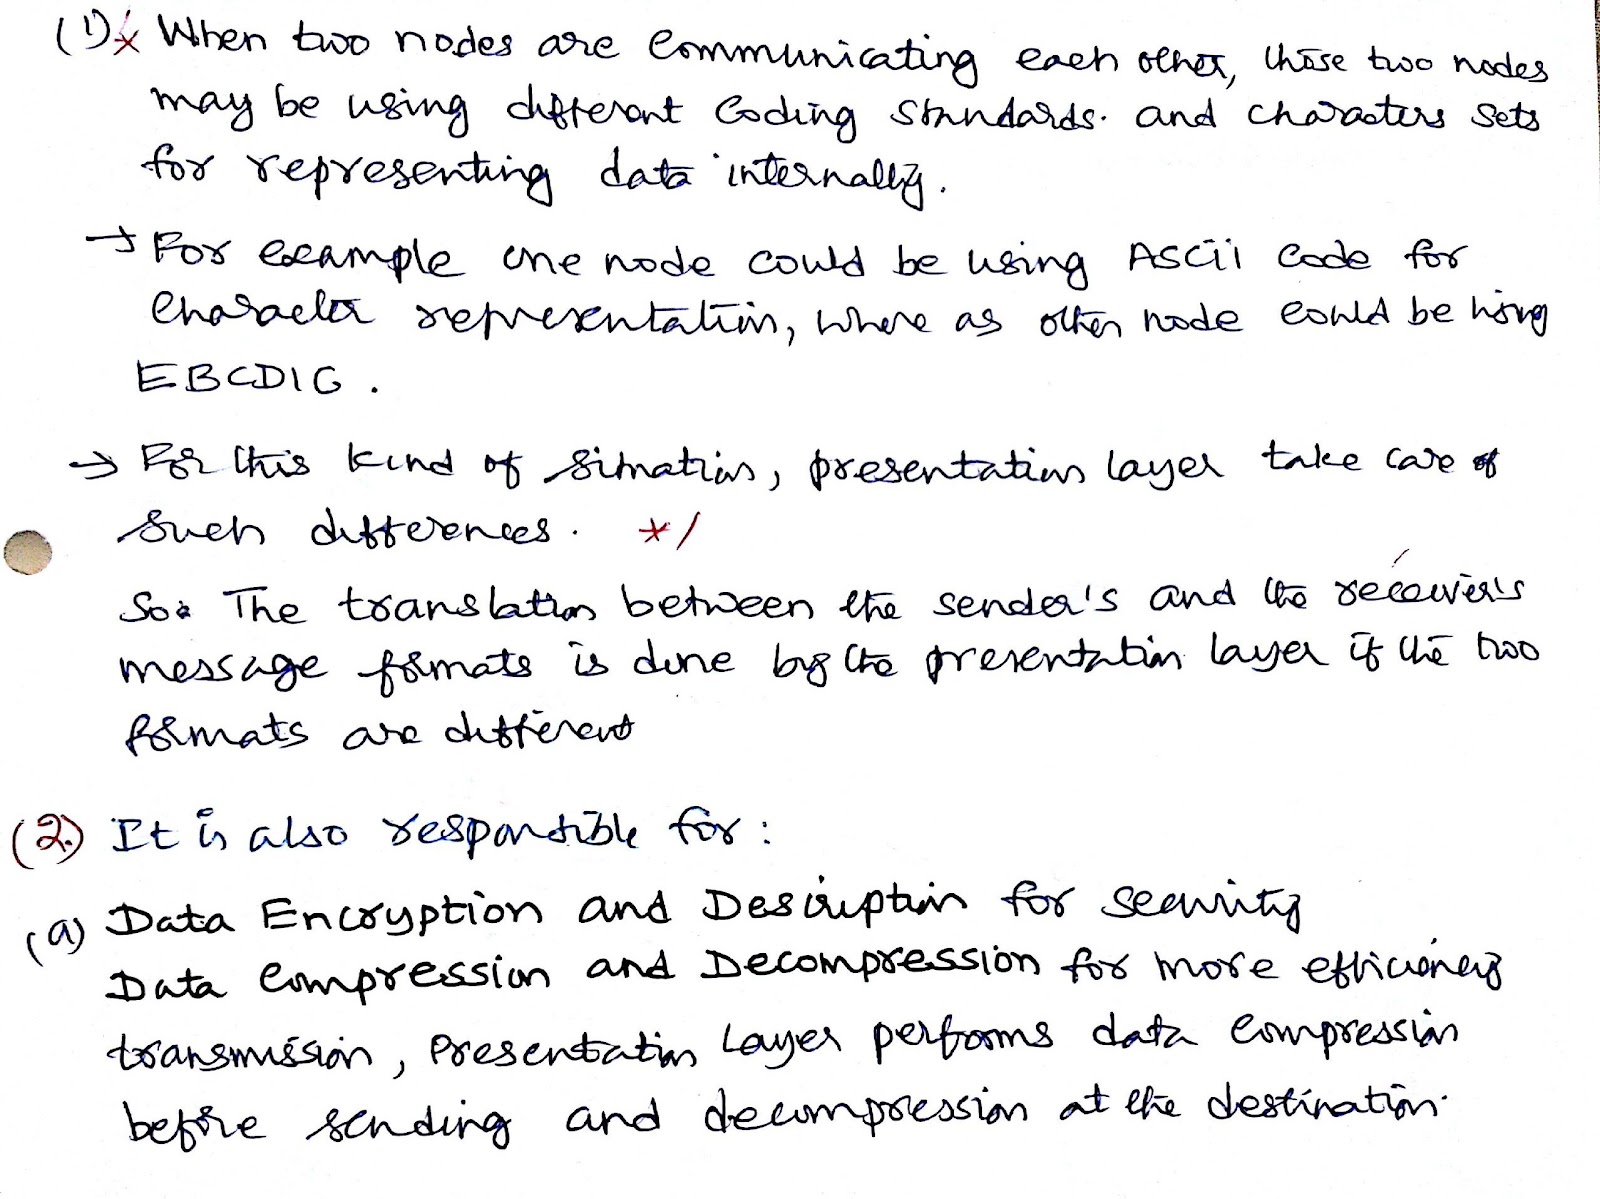 (1)* When two nodes are Communicating each other, those two nodes
may be using different Coding Standards. and characters sets
for representing data internally.
→ For example one node could be using ASCII Code for
Character representation, where as other node could be using
EBCDIG.
→ For this kind of situation, presentation layer take care of
such differences. */
So: The translation between the sender's and the receiver's
message formats is done by the presentation layer if the two
formats are different
(2.) It is also responsible for:
(a) Data Encryption and Description for security
Data Compression and Decompression for more efficiency
transmission, Presentation Layer performs data compression
before sending and decompression at the destination.